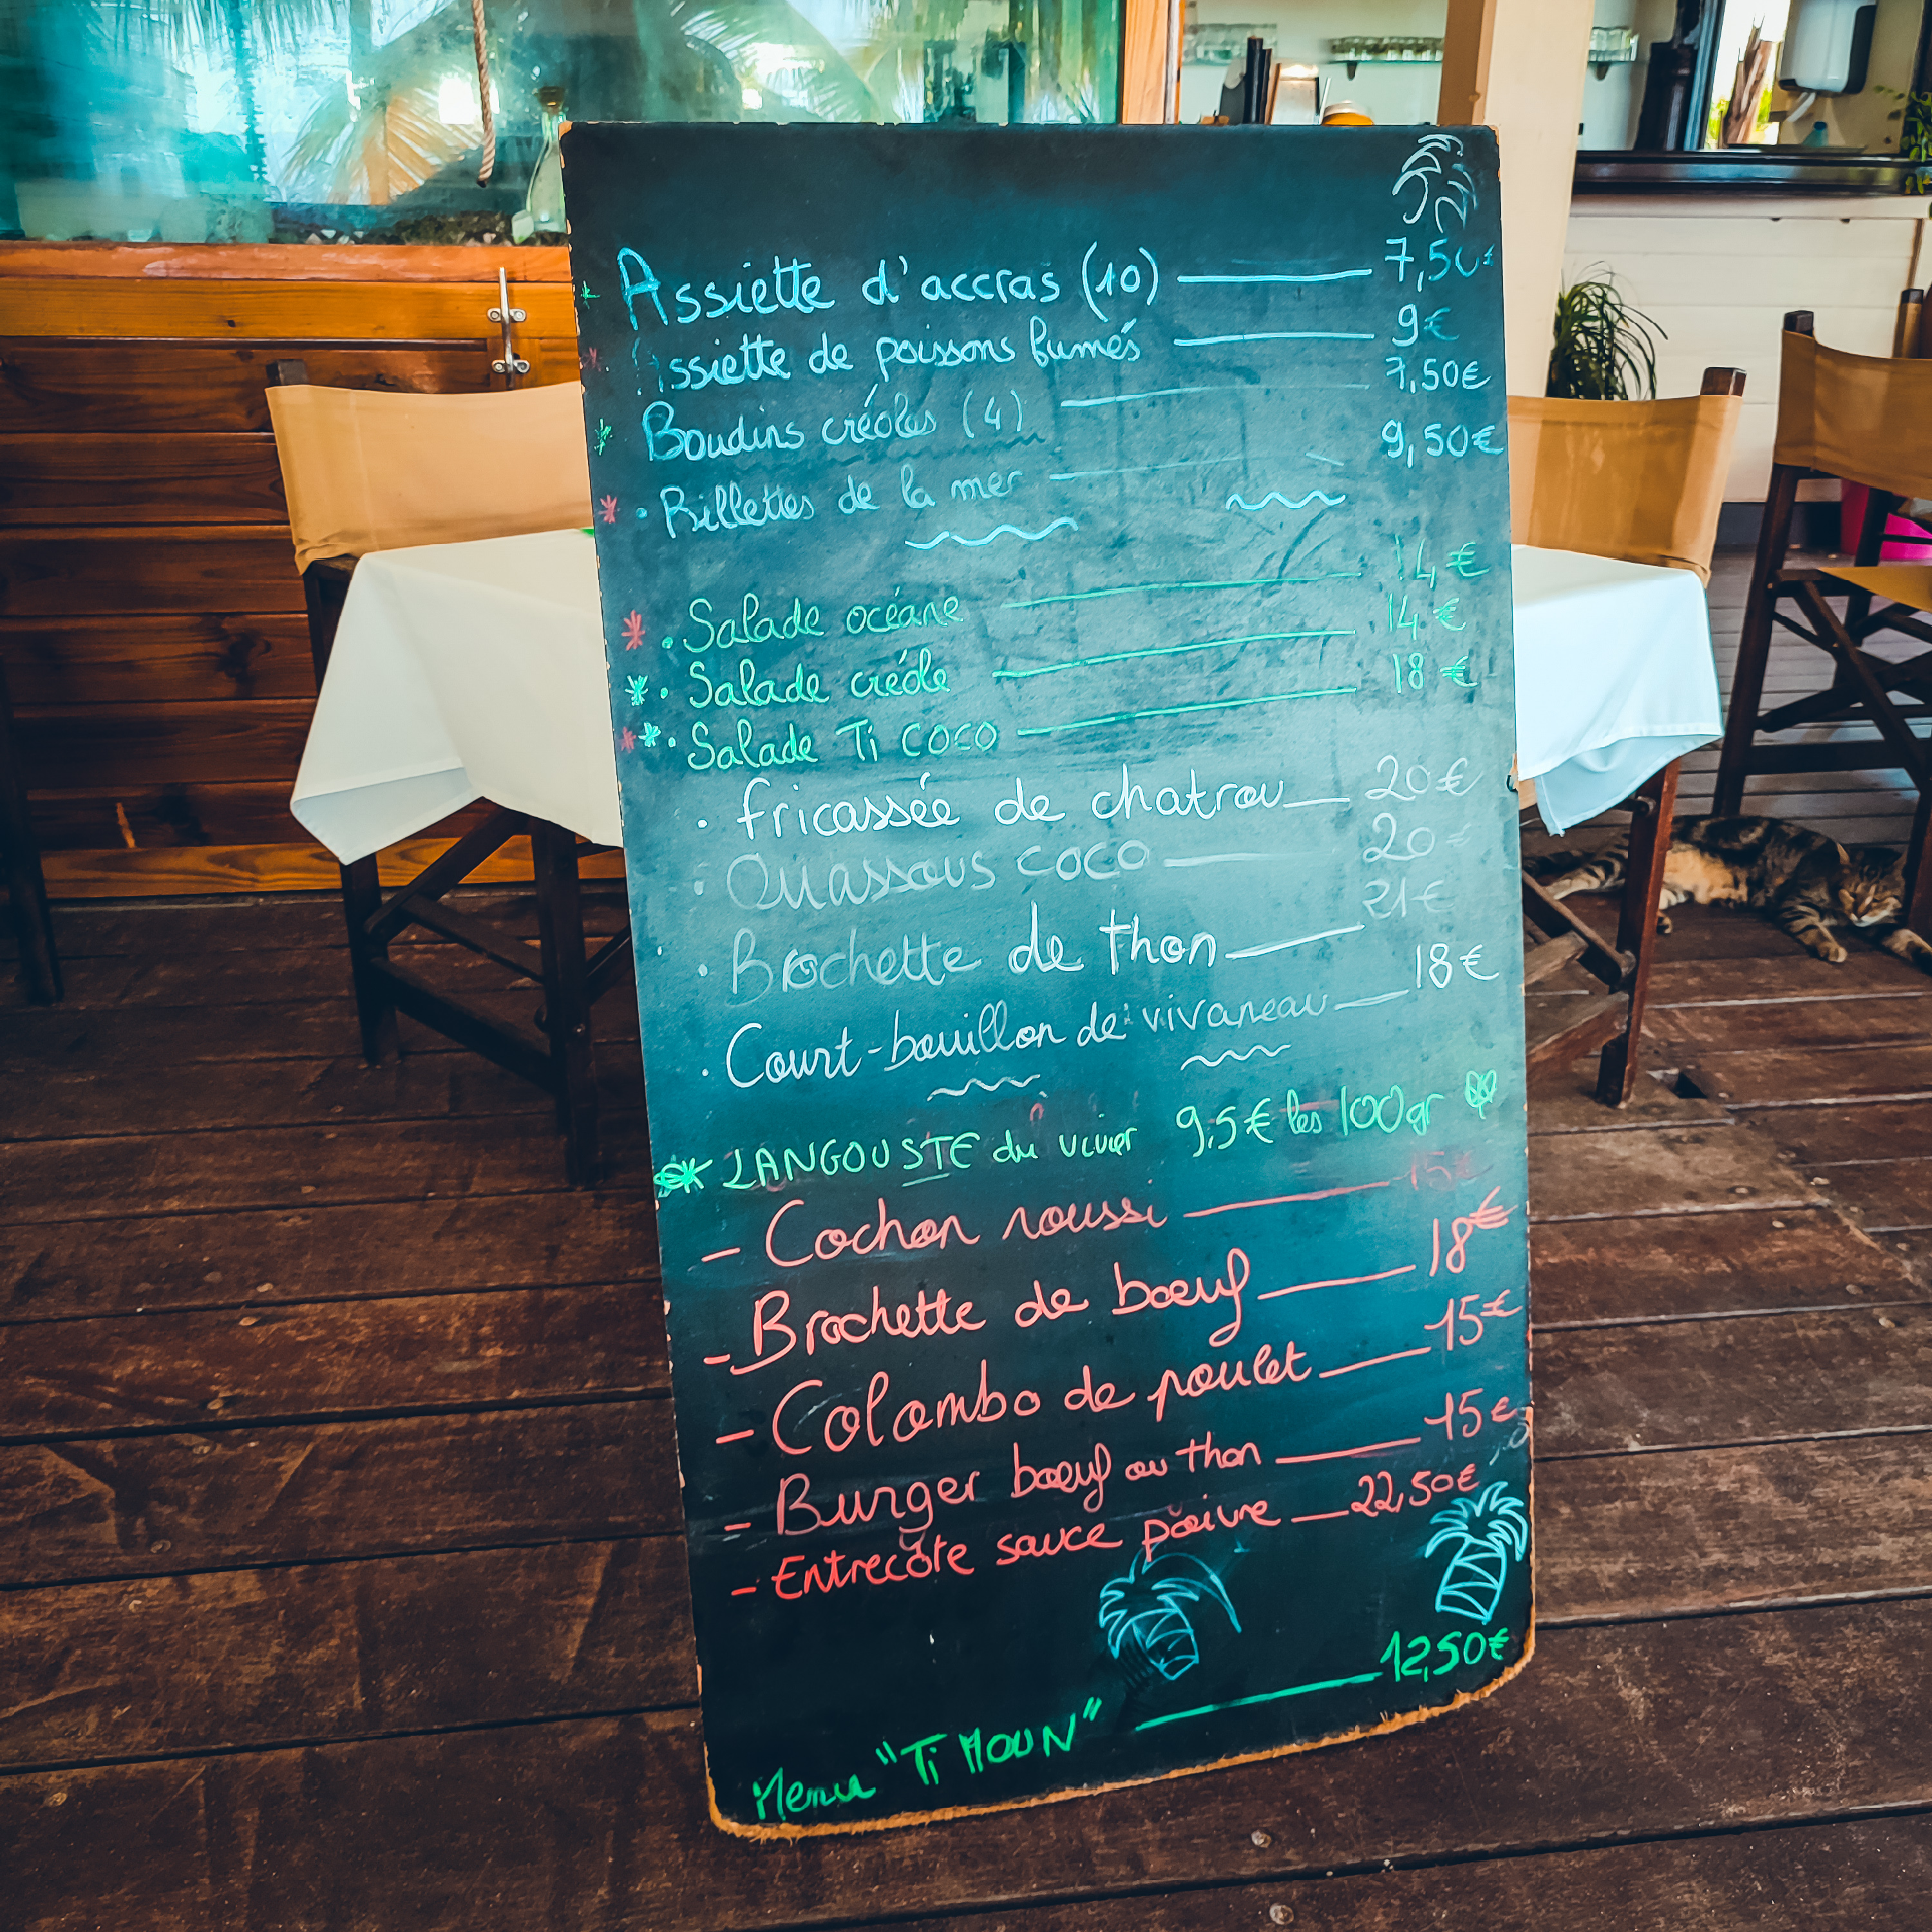 * Assiette d'accras (10) — 7,50€
* Assiette de poissons fumés — 9€
* Boudins créoles (4) — 7,50€
* · Rillettes de la mer — 9,50€
* · Salade océane — 14€
* · Salade créole — 14€
** · Salade Ti coco — 18€
· fricassée de chatrou — 20€
· Ouassous coco — 20€
· Brochette de thon — 21€
· Court-bouillon de vivaneau — 18€
* LANGOUSTE du vivier 9,5€ les 100gr
- Cochon roussi — 15€
- Brochette de bœuf — 18€
- Colombo de poulet — 15€
- Burger bœuf ou thon — 15€
- Entrecôte sauce poivre — 22,50€
Menu "Ti MOUN" — 12,50€